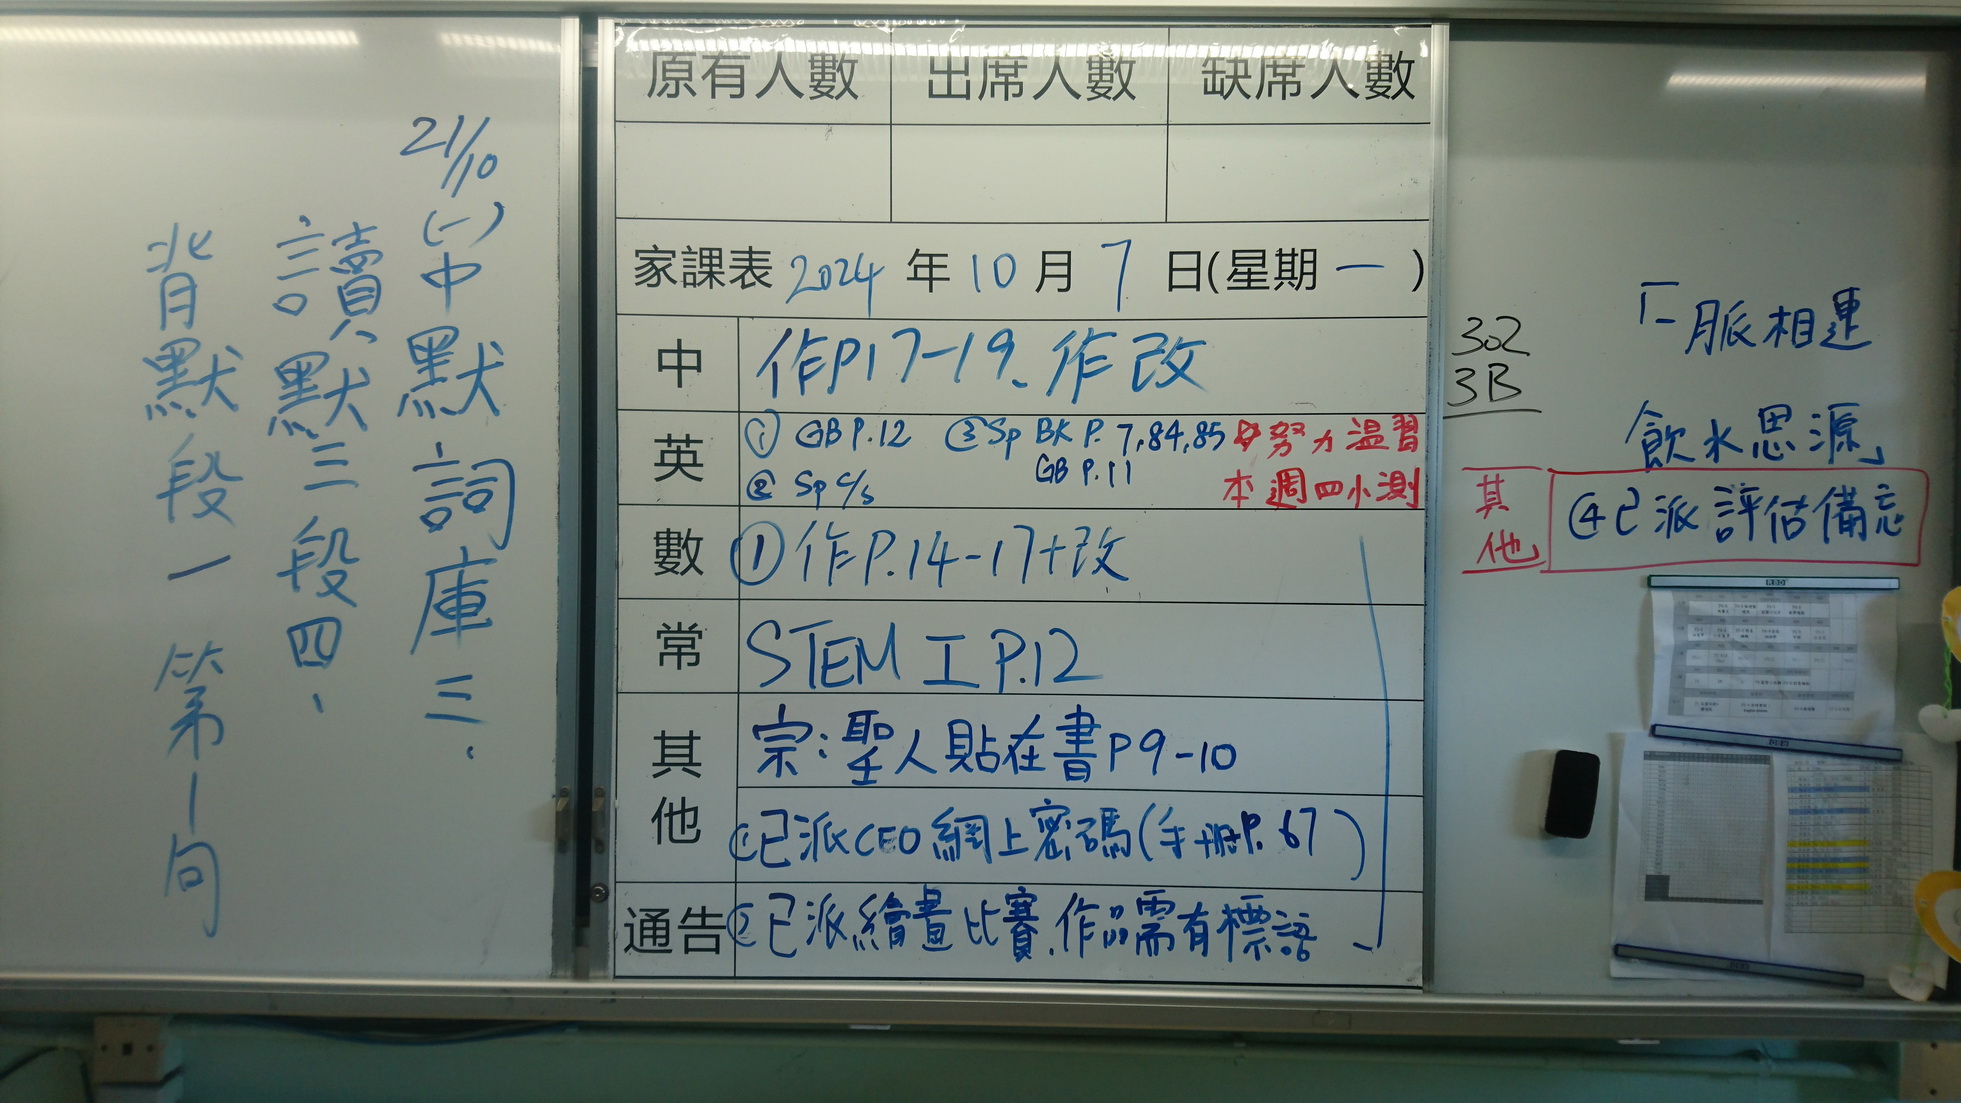 21/10(一)中默詞庫三、
讀默三段四、
背默段一第1句
原有人數 出席人數 缺席人數
家課表 2024 年 10 月 7 日(星期一)
中 作P17-19、作改
英 ① GB P.12 ③ Sp BK P. 7,84,85 努力温習
② Sp c/s GB P.11 本週四小測
數 ①作P.14-17+改
常 STEM 工 P.12
其他 宗:聖人貼在書P9-10
①已派CEO網上密碼(手冊P.67)
通告 ②已派繪畫比賽.作品需有標語
302
3B
「一脈相連
飲水思源」
其他 ④已派評估備忘